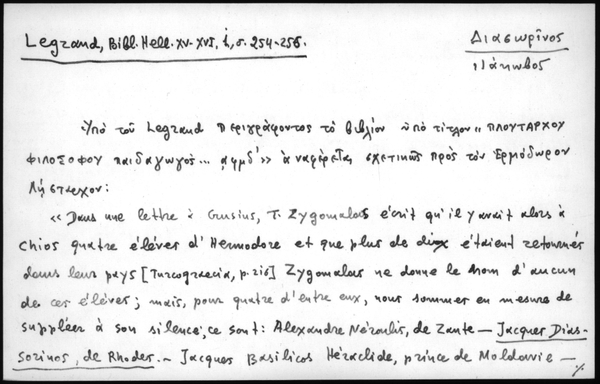 Legrand, Bibl. Hell. XV-XVI, ἱ, σ. 254-256.
Διασωρῖνος
Ἰάκωβος
Ὑπὸ τοῦ Legrand περιγράφοντος τὸ βιβλίον ὑπὸ τίτλον « ΠΛΟΥΤΑΡΧΟΥ
ΦΙΛΟΣΟΦΟΥ παιδαγωγός... ͵αφμδʹ » ἀναφέρεται σχετικῶς πρὸς τὸν Ἑρμόδωρον
Λήσταρχον:
« Dans une lettre à Crusius, T. Zygomalas écrit qu'il y avait alors à
Chios quatre élèves d'Hermodore et que plus de dix étaient retournés
dans leur pays [Turcograecia, p. 216] Zygomalas ne donne le nom d'aucun
de ces élèves; mais, pour quatre d'entre eux, nous sommes en mesure de
suppléer à son silence, ce sont: Alexandre Néroulis, de Zante — Jacques Dias-
sorinos, de Rhodes. — Jacques Basilicos Héraclide, prince de Moldavie —
./.